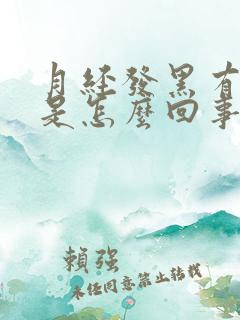 月經發黑有
是怎麼回事
賴強
未经同意禁止转载